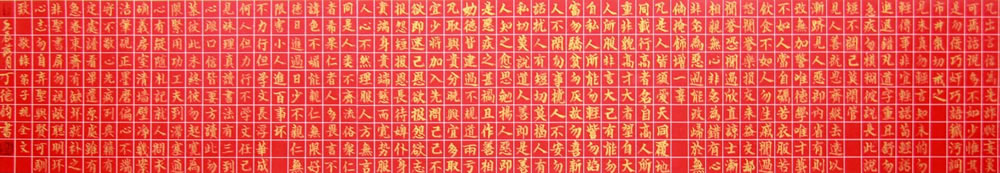 信
凡出言信為先詐與妄奚
可焉話說多不如少惟其
是勿佞巧奸巧語穢污詞
市井氣切戒之
見未真勿輕言知未的勿
輕傳事非宜勿輕諾苟輕
諾進退錯凡道字重且舒
勿急疾勿模糊彼說長此
說短不關己莫閒管
見人善即思齊縱去遠以
漸躋見人惡即內省有則
改無加警唯德學唯才藝
不如人當自礪若衣服若
飲食不如人勿生慼聞過
怒聞譽樂損友來益友卻
聞譽恐聞過欣直諒士漸
相親無心非名為錯有心
非名為惡過能改歸於無
倘掩飾增一辜
凡是人皆須愛天同覆地
同載行高者名自高人所
重非貌高才大者望自大
人所服非言大己有能勿
自私人所能勿輕訾勿諂
富勿驕貧勿厭故勿喜新
人不閒勿事攪人不安勿
話擾人有短切莫揭人有
私切莫說道人善即是善
人知之愈思勉揚人惡即
是惡疾之甚禍且作善相
勸德皆建過不規道兩虧
凡取與貴分曉與宜多取
宜少將加人先問己己不
欲即速已恩欲報怨欲忘
報怨短報恩長待婢僕身
貴端雖貴端慈而寬勢服
人心不然理服人方無言
同是人類不齊流俗眾仁
者希果仁者人多畏言不
諱色不媚能親仁無限好
德日進過日少不親仁無
限害小人進百事壞
不力行但學文長浮華成
何人但力行不學文任己
見昧理真讀書法有三到
心眼口信皆要方讀此勿
慕彼此未終彼勿起寬為
限緊用功工夫到滯塞通
心有疑隨札記就人問求
確義房室清牆壁淨几案
潔筆硯正墨磨偏心不端
字不敬心先病列典籍有
定處讀看畢還原處雖有
急卷束齊有缺壞就補之
非聖書屏勿視敝聰明壞
心志勿自暴勿自棄聖與賢可馴
致 敬錄弟子規全文
丁德
書